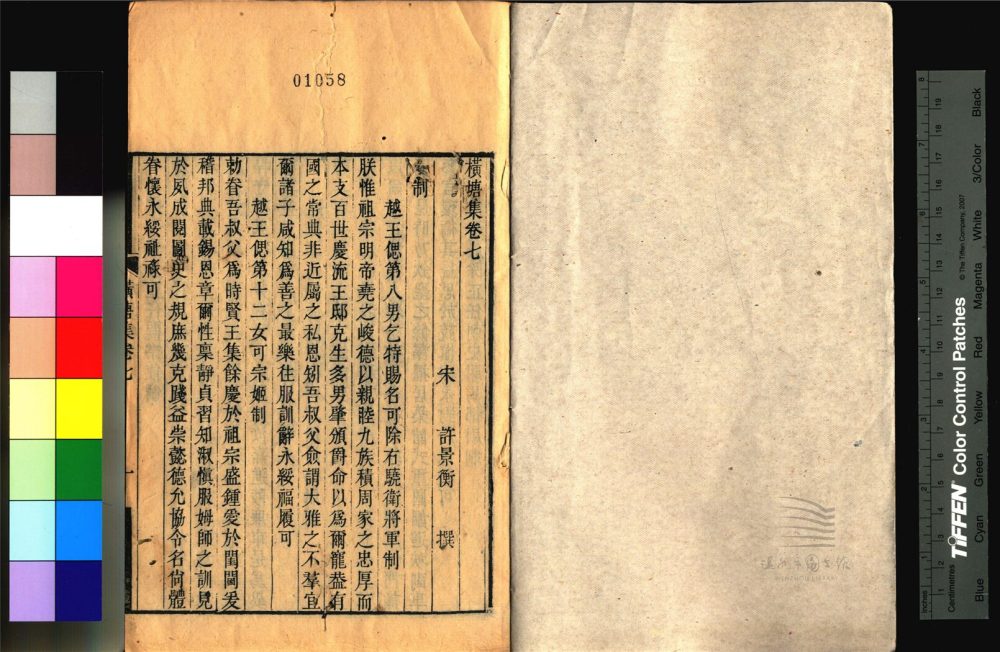 01058
橫塘集卷七
宋 許景衡 撰
制
越王偲第八男乞特賜名可除右驍衛將軍制
朕惟祖宗明帝堯之峻德以親睦九族積周家之忠厚而
本支百世慶流王邸克生多男肇頒爵命以爲爾寵葢有
國之常典非近屬之私恩矧吾叔父僉謂大雅之不羣宜
爾諸子咸知爲善之最樂往服訓辭永綏福履可
越王偲第十二女可宗姬制
勅眷吾叔父爲時賢王集餘慶於祖宗盛鍾愛於閨闈爰
稽邦典載錫恩章爾性稟靜貞習知淑愼服姆師之訓見
於夙成閱圖史之規庶幾克踐益崇懿德允協令名尙體
眷懷永綏祉祿可
橫塘集卷七
一
Inches
Centimetres
TIFFEN Color Control Patches
© The Tiffen Company, 2007
Blue
Cyan
Green
Yellow
Red
Magenta
White
3/Color
Black